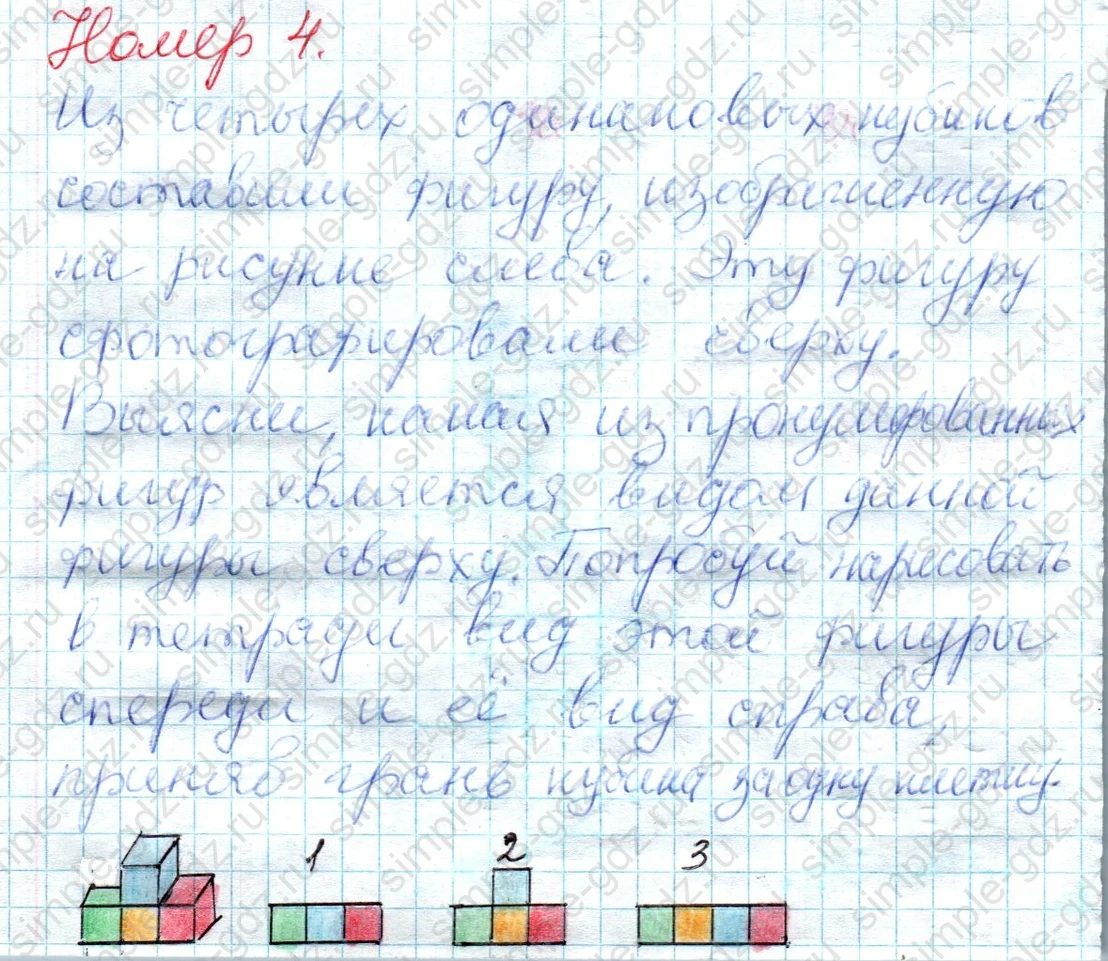 Номер 4.
Из четырех одинаковых кубиков
составили фигуру, изображенную
на рисунке слева. Эту фигуру
сфотографировали сверху.
Выясни, какая из пронумерованных
фигур является видом данной
фигуры сверху. Попробуй нарисовать
в тетради вид этой фигуры
спереди и её вид справа,
приняв грань кубика за одну клетку.
1 2 3
simple-gdz.ru